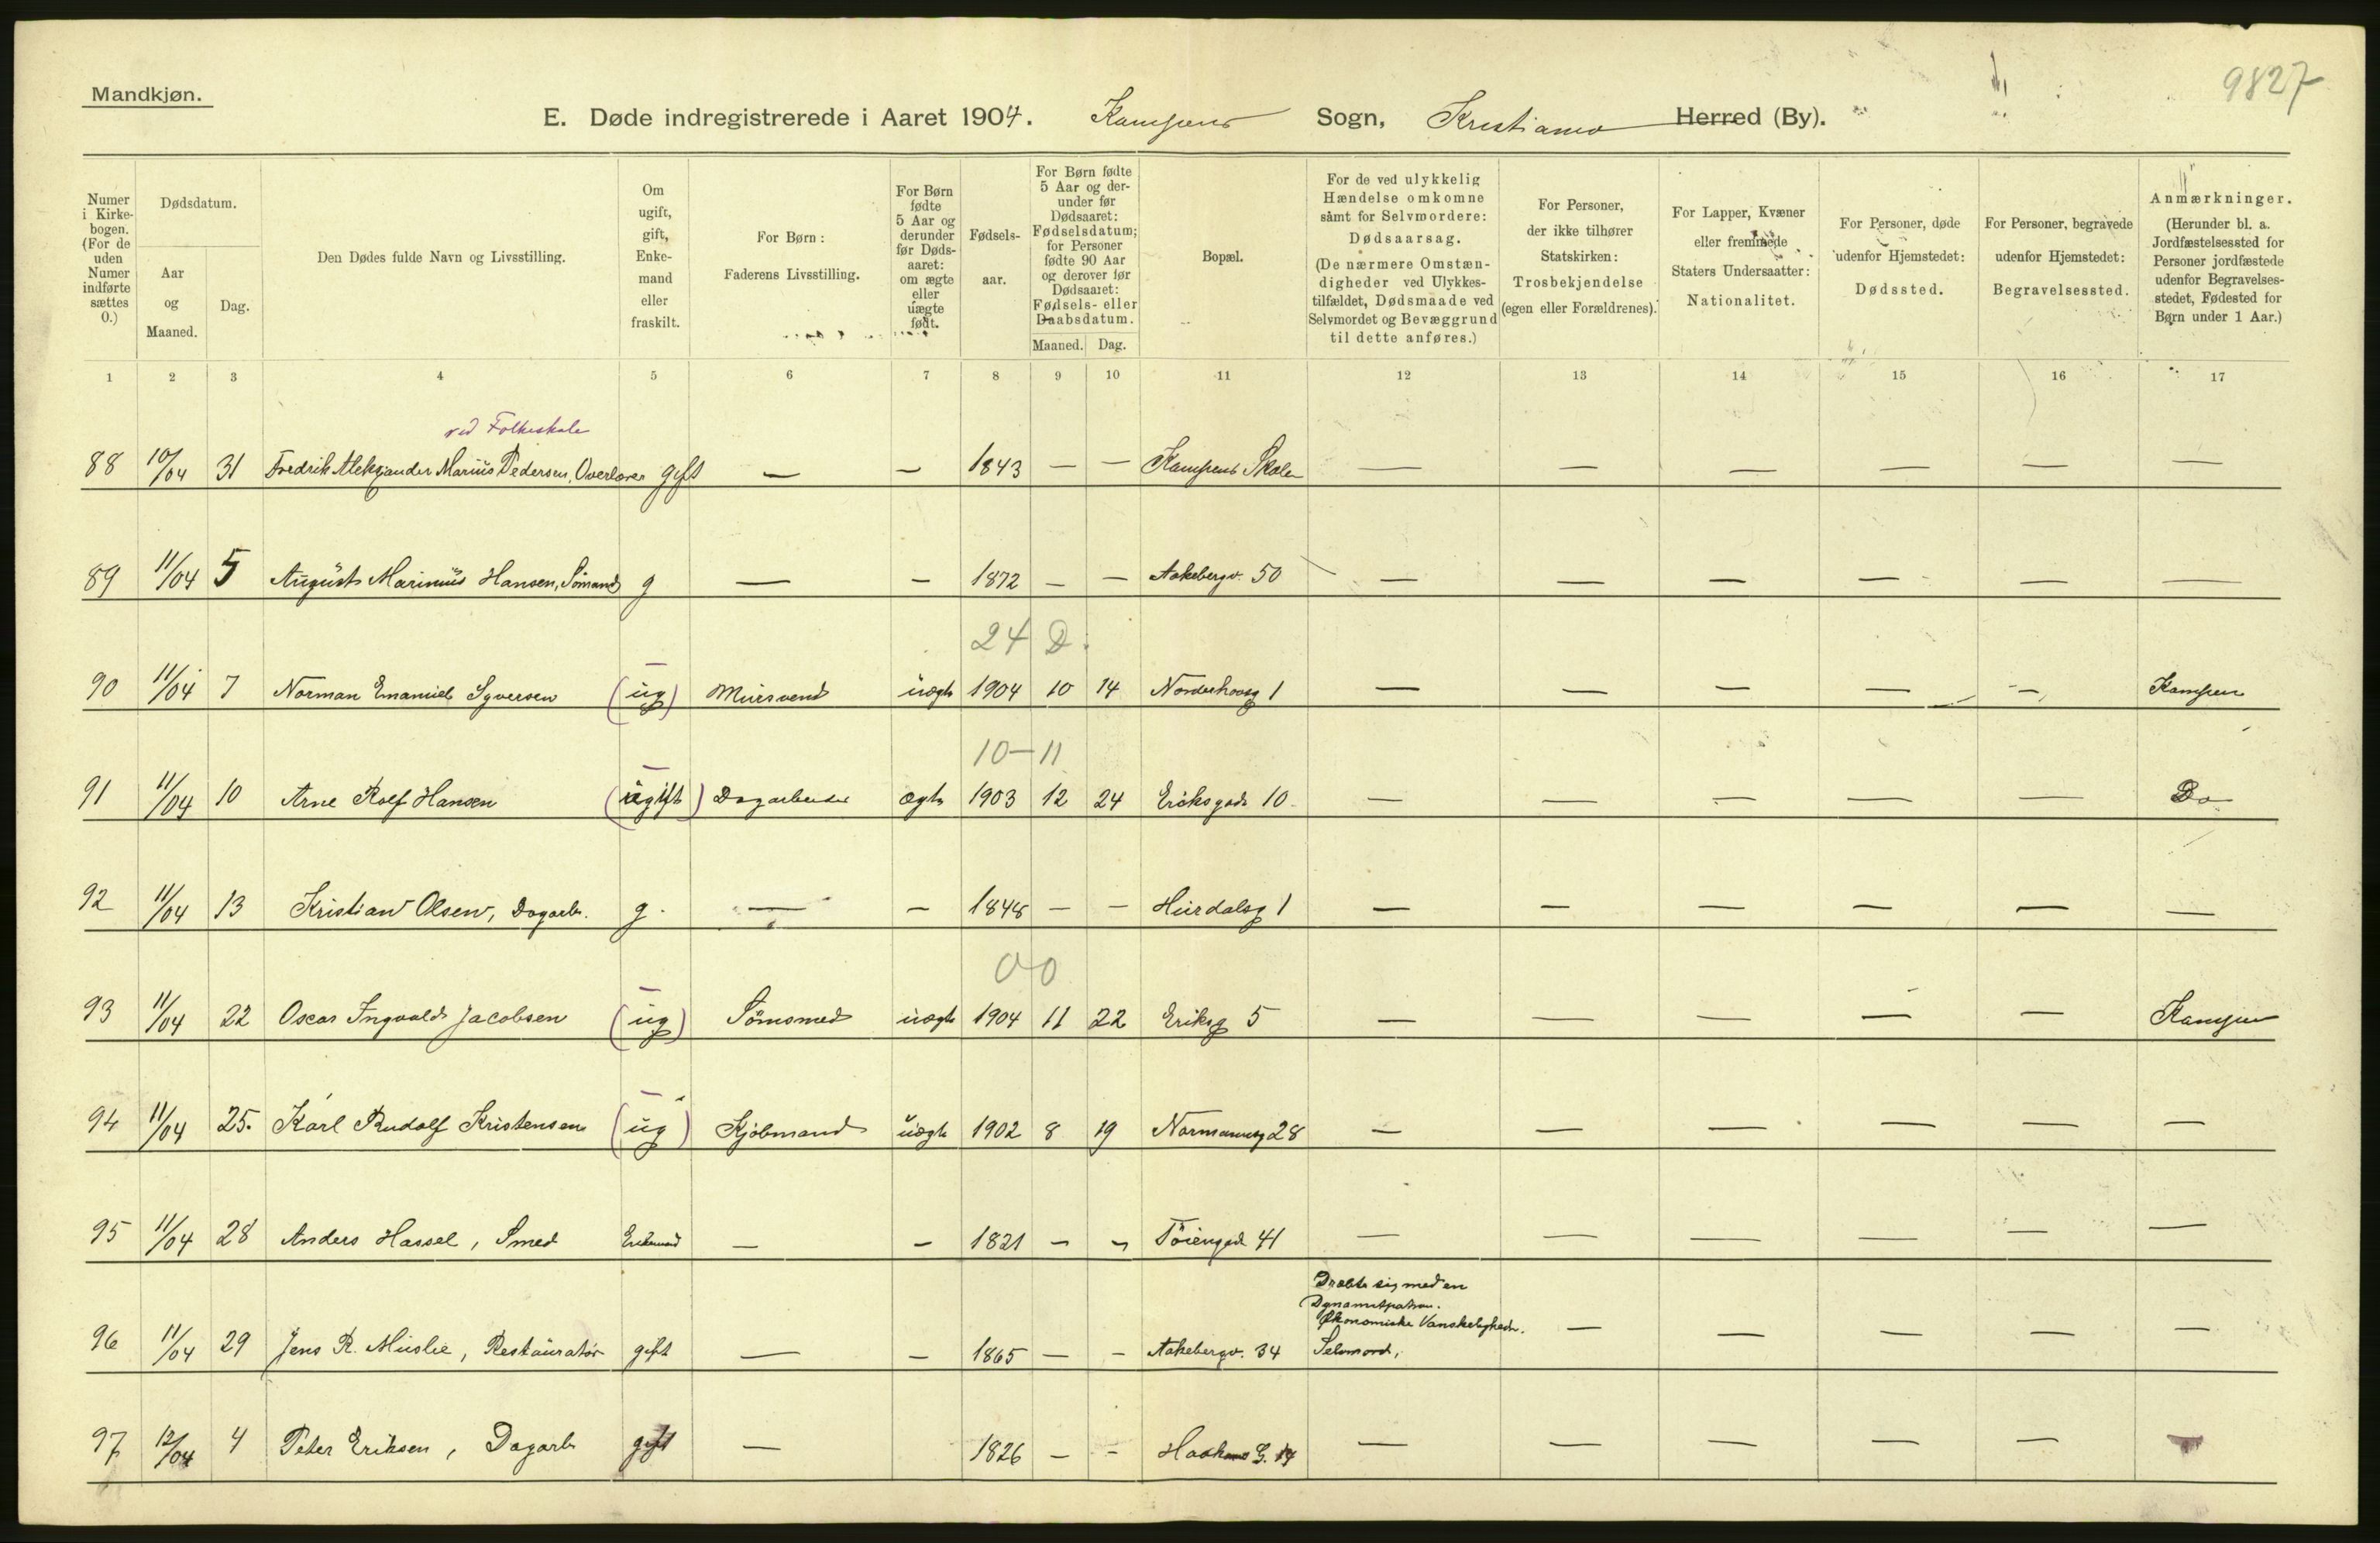 9827
Mandkjøn.
E. Døde indregistrerede i Aaret 1904. Kampens Sogn, Kristiania Herred (By).
Numer i Kirke-bogen. (For de uden Numer indførte sættes 0.)
Dødsdatum.
Aar og Maaned.
Dag.
Den Dødes fulde Navn og Livsstilling.
Om ugift, gift, Enke-mand eller fraskilt.
For Børn: Faderens Livsstilling.
For Børn fødte 5 Aar og derunder før Døds-aaret: om ægte eller uægte født.
Fødsels-aar.
For Børn fødte 5 Aar og der-under før Dødsaaret: Fødselsdatum; for Personer fødte 90 Aar og derover før Dødsaaret: Fødsels- eller Daabsdatum.
Maaned. Dag.
Bopæl.
For de ved ulykkelig Hændelse omkomne samt for Selvmordere: Dødsaarsag. (De nærmere Omstæn-digheder ved Ulykkes-tilfældet, Dødsmaade ved Selvmordet og Bevæggrund til dette anføres.)
For Personer, der ikke tilhører Statskirken: Trosbekjendelse (egen eller Forældrenes).
For Lapper, Kvæner eller fremmede Staters Undersaatter: Nationalitet.
For Personer, døde udenfor Hjemstedet: Dødssted.
For Personer, begravede udenfor Hjemstedet: Begravelsessted.
Anmærkninger. (Herunder bl. a. Jordfæstelsessted for Personer jordfæstede udenfor Begravelses-stedet, Fødested for Børn under 1 Aar.)
1 2 3 4 5 6 7 8 9 10 11 12 13 14 15 16 17
ved Folkeskole
88 10/04 31 Fredrik Aleksander Marius Pedersen, Overlærer gift — — 1843 — — Kampens Skole — — — — — —
89 11/04 5 August Marinius Hansen, Sømand g — — 1872 — — Aakebergv. 50 — — — — — —
24 D.
90 11/04 7 Norman Emanuel Syversen (ug) Mursvend uægte 1904 10 14 Norderhovsg 1 — — — — — Kampen
10 — 11
91 11/04 10 Arne Rolf Hansen (ugift) Dagarbeider ægte 1903 12 24 Eriksgade 10 — — — — — Do
92 11/04 13 Kristian Olsen, Dagarb. g. — — 1848 — — Hurdalsg 1 — — — — — —
00
93 11/04 22 Oscar Ingvald Jacobsen (ug) Sömsmed uægte 1904 11 22 Eriksg 5 — — — — — Kampen
94 11/04 25. Karl Rudolf Kristensen (ug) Kjöbmand uægte 1902 8 19 Normannsg 28 — — — — — —
95 11/04 28 Anders Hassel, Smed Enkemand — — 1821 — — Töiengade 41 — — — — — —
Dræbte sig med en
Dynamitpatron.
Økonomiske Vanskeligheder.
96 11/04 29 Jens R. Muslie, Restauratör gift — — 1865 — — Aakebergv. 34 Selvmord, — — — — —
97 12/04 4 Peter Eriksen, Dagarb gift — 1826 — — G. — — — — —